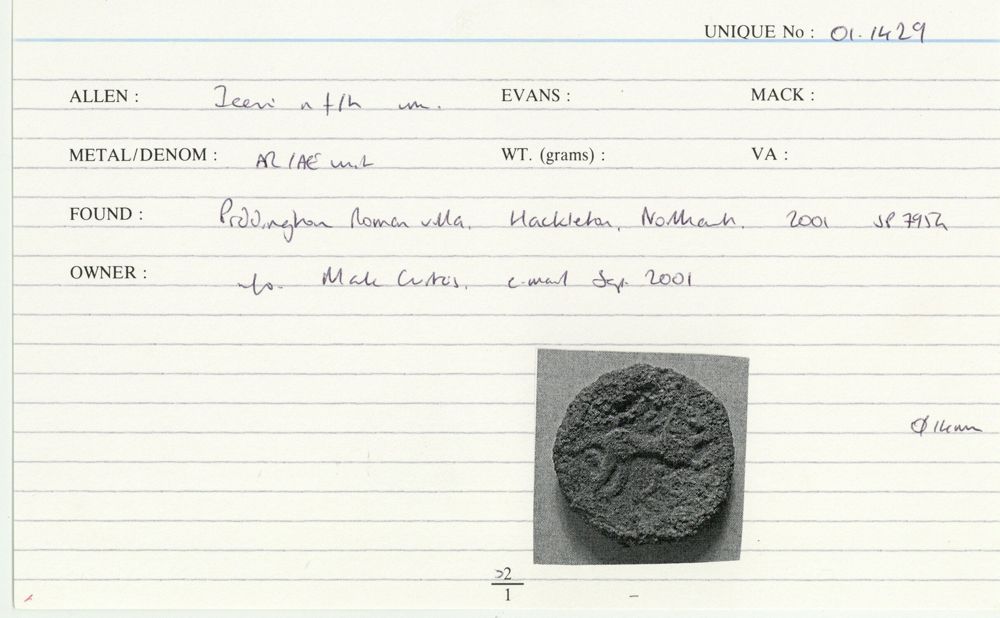 UNIQUE No : 01.1429
ALLEN : Iceni EVANS : MACK :
METAL/DENOM : AR/AE unit WT. (grams) : VA :
FOUND : Piddington Roman villa, Hackleton, Northants. 2001 SP 7954
OWNER : info. Mark Curteis, e-mail Sep. 2001
Ø 14mm
1